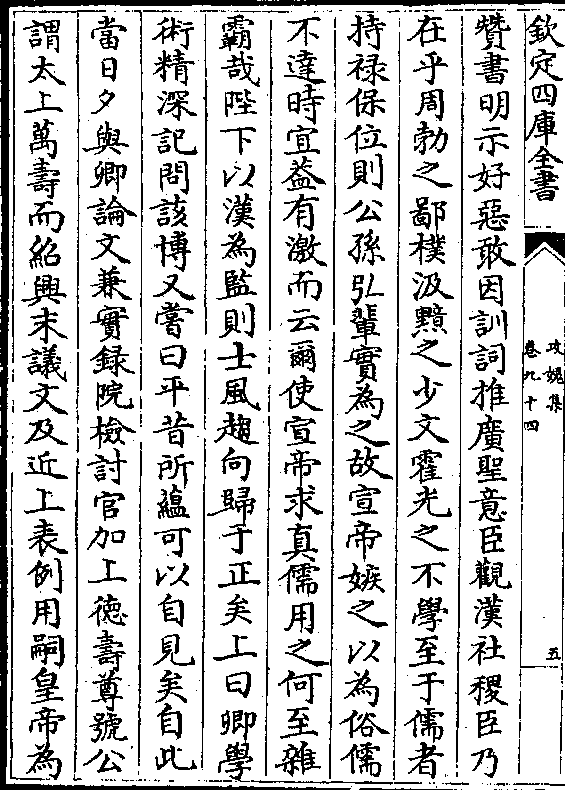 欽定四庫全書
攻媿集
卷九十四
五
贊書明示好惡敢因訓詞推廣聖意臣觀漢社稷臣乃
在乎周勃之鄙樸汲黯之少文霍光之不學至于儒者
持祿保位則公孫弘輩實為之故宣帝嫉之以為俗儒
不達時宜葢有激而云爾使宣帝求真儒用之何至雜
霸哉陛下以漢為監則士風趨向歸于正矣上曰卿學
術精深記問該博又嘗曰平昔所蘊可以自見矣自此
當日夕與卿論文兼實錄院檢討官加上徳壽尊號公
謂太上萬壽而紹興末議文及近上表例用嗣皇帝為